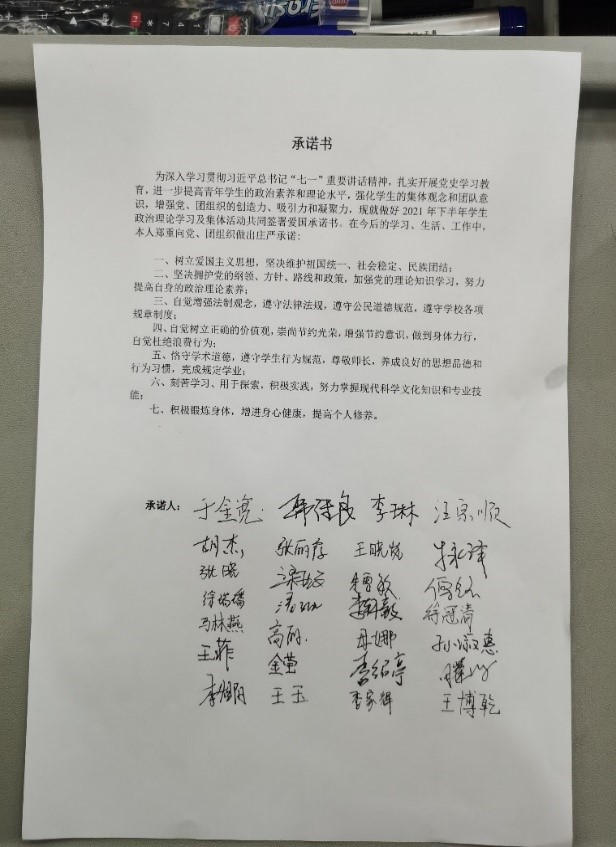 承诺书
为深入学习贯彻习近平总书记“七一”重要讲话精神，扎实开展党史学习教
育，进一步提高青年学生的政治素养和理论水平，强化学生的集体观念和团队意
识，增强党、团组织的创造力、吸引力和凝聚力，现就做好 2021 年下半年学生
政治理论学习及集体活动共同签署爱国承诺书。在今后的学习、生活、工作中，
本人郑重向党、团组织做出庄严承诺：
一、树立爱国主义思想，坚决维护祖国统一、社会稳定、民族团结；
二、坚决拥护党的纲领、方针、路线和政策，加强党的理论知识学习，努力
提高自身的政治理论素养；
三、自觉增强法制观念，遵守法律法规，遵守公民道德规范，遵守学校各项
规章制度；
四、自觉树立正确的价值观，崇尚节约光荣，增强节约意识，做到身体力行，
自觉杜绝浪费行为；
五、恪守学术道德，遵守学生行为规范，尊敬师长，养成良好的思想品德和
行为习惯，完成规定学业；
六、刻苦学习、用于探索，积极实践，努力掌握现代科学文化知识和专业技
能；
七、积极锻炼身体，增进身心健康，提高个人修养。
承诺人： 于金亮 韩保良 李琳 汪宗顺
胡杰 张丽存 王晓悦
张晓
徐瑞璠 徐冠清
马林燕 高丽 母娜 孙淑惠
王菲 金萱 李绍亭
李旭阳 王玉 李家辉 王博乾